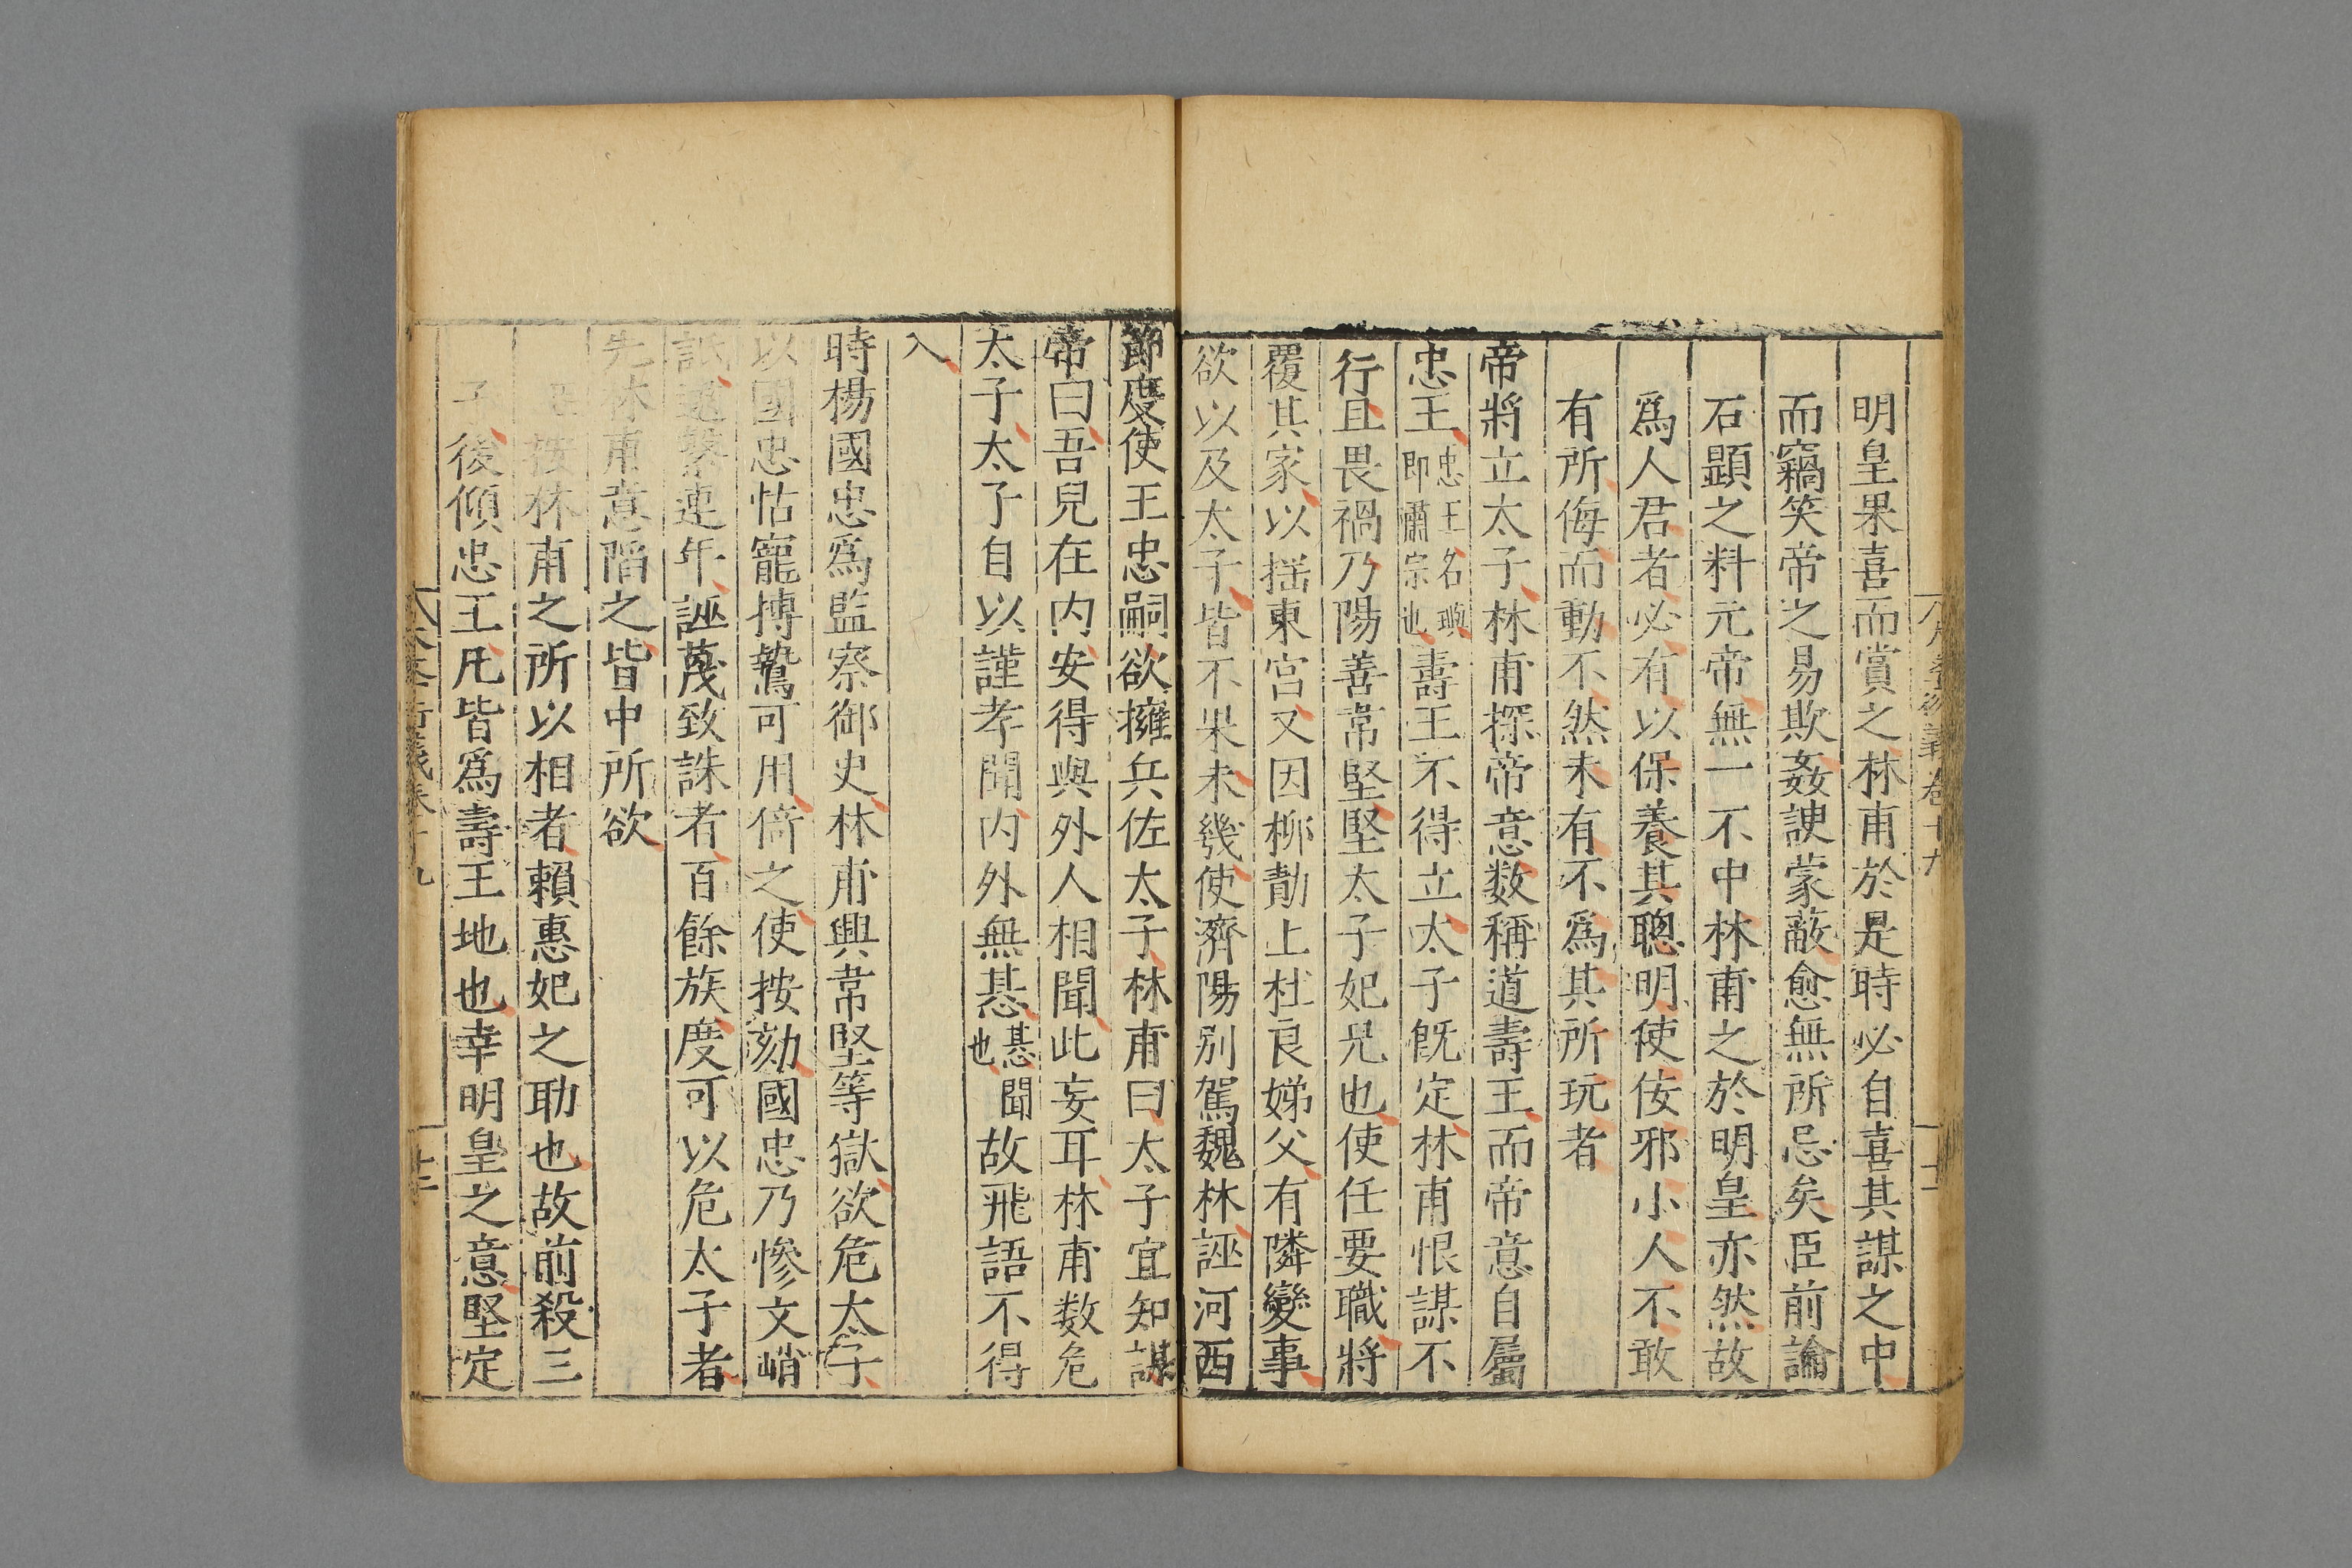 明皇果喜而賞之林甫於是時必自喜其謀之中
而竊笑帝之易欺姦諛蒙蔽愈無所忌矣臣前論
石顯之料元帝無一不中林甫之於明皇亦然故
爲人君者必有以保養其聰明使佞邪小人不敢
有所侮而動不然未有不爲其所玩者
帝將立太子林甫探帝意数稱道壽王而帝意自屬
忠王忠王名璵即肅宗也壽王不得立太子既定林甫恨謀不
行且畏禍乃陽善韋堅堅太子妃兄也使任要職將
覆其家以揺東宮又因柳勣上杜良娣父有隣變事
欲以及太子皆不果未幾使濟陽別駕魏林誣河西
節度使王忠嗣欲擁兵佐太子林甫曰太子宜知謀
帝曰吾兒在内安得與外人相聞此妄耳林甫数危
太子太子自以謹孝聞内外無惎惎聞也故飛語不得
入
時楊國忠爲監察御史林甫興韋堅等獄欲危太子
以國忠怙寵搏鷙可用倚之使按劾國忠乃慘文峭
詆逮繫連年誣衊致誅者百餘族度可以危太子者
先林甫意陷之皆中所欲
按林甫之所以相者賴惠妃之助也故前殺三
子後傾忠王凡皆爲壽王地也幸明皇之意堅定